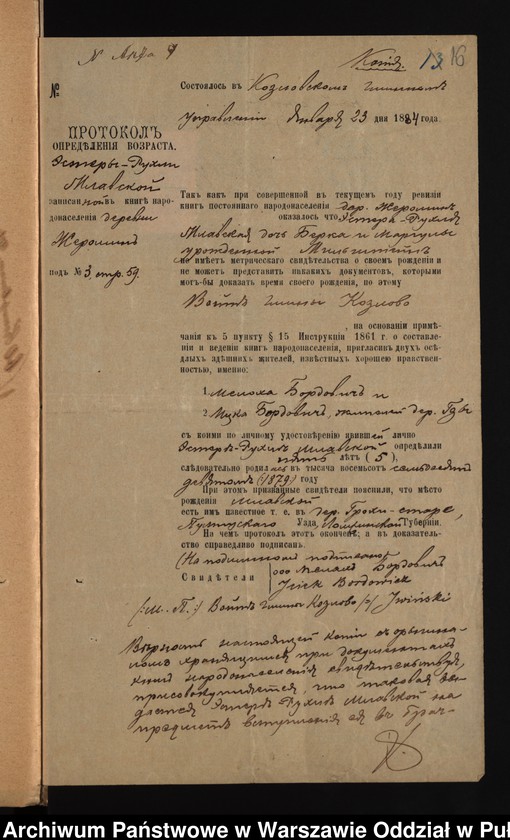 Копія
13 16
№
Состоялось въ Козловскомъ гминномъ
управленіи Января 23 дня 1884 года
ПРОТОКОЛЪ
ОПРЕДѢЛЕНІЯ ВОЗРАСТА.
Эстеры-Рухли
Млавской
записанной въ книгѣ наро-
донаселенія деревни
подъ № 3 стр. 59
Такъ какъ при совершенной въ текущемъ году ревизіи
книгъ постояннаго народонаселенія дер.
оказалось что Эстера-Рухля
Млавская дочь Берка и
урожденной
не имѣетъ метрическаго свидѣтельства о своемъ рожденіи и
не можетъ представить никакихъ документовъ, которыми
могъ-бы доказать время своего рожденія, по этому
Войтъ гмины Козлово
на основаніи примѣ-
чанія къ 5 пункту § 15 Инструкціи 1861 г. о составле-
ніи и веденіи книгъ народонаселенія, пригласивъ двухъ осѣ-
длыхъ здѣшнихъ жителей, извѣстныхъ хорошею нравствен-
ностью, именно:
1. Бордовичъ и
2. Ицка Бордовичъ, жителей дер.
съ коими по личному удостовѣренію явившей лично
Эстеръ-Рухлѣ Млавской опредѣлили
пять лѣтъ ( 5 ),
слѣдовательно родилась въ тысяча восемьсотъ семьдесятъ
девятомъ (1879) году
При этомъ призванные свидѣтели пояснили, что мѣсто
рожденія Млавской
есть имъ извѣстное т. е. въ дер.
Пултускаго Уѣзда, Ломжинской Губерніи.
На чемъ протоколъ этотъ оконченъ; а въ доказатель-
ство справедливо подписанъ.
(На подлинномъ подписано)
Бордовичъ
Свидѣтели
Icick Bordowick
(: М. П. :) Войтъ гмины Козлово /-/ Iwiński
Вѣрность настоящей копіи съ оригина-
ломъ хранящимся при документахъ
книгъ народонаселенія свидѣтельствуя,
присовокупляется, что таковая вы-
дается Эстерѣ Рухлѣ Млавской на
предметъ вступленія ея въ брач-
Archiwum Państwowe w Warszawie Oddział w Puł